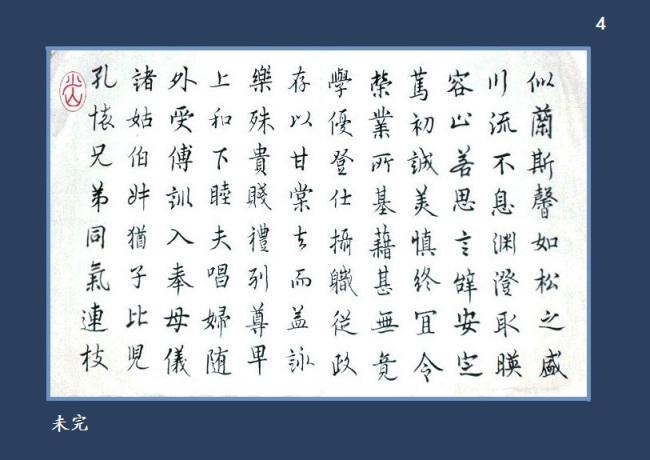 4
似蘭斯馨如松之盛
川流不息淵澄取暎
容止若思言辭安定
篤初誠美慎終宜令
榮業所基藉甚無竟
學優登仕攝職從政
存以甘棠去而益詠
樂殊貴賤禮別尊卑
上和下睦夫唱婦随
外受傅訓入奉母儀
諸姑伯叔猶子比兒
孔懷兄弟同氣連枝
未完